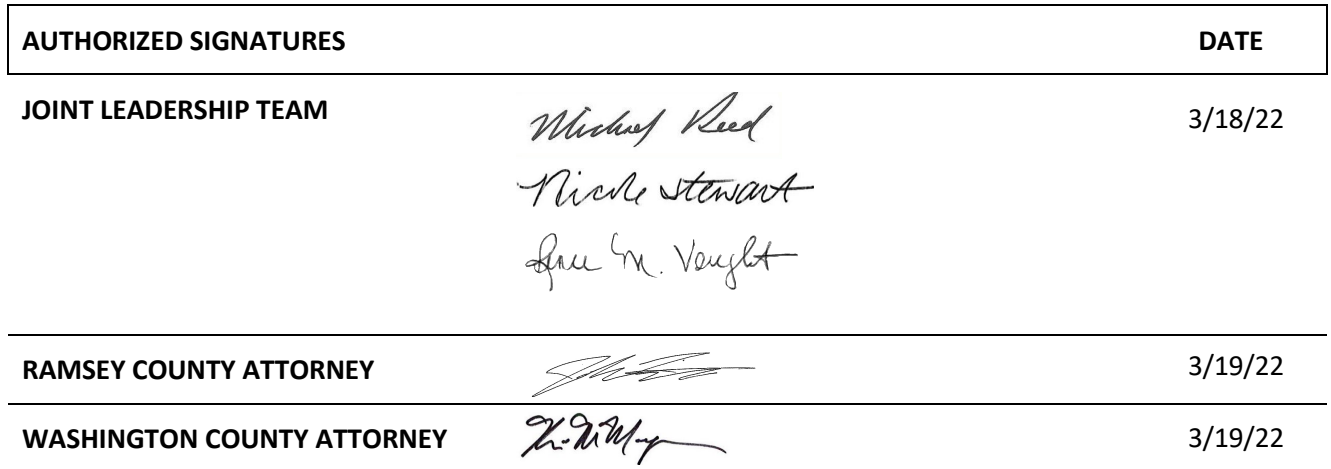 AUTHORIZED SIGNATURES DATE
JOINT LEADERSHIP TEAM Michael Reed 3/18/22
Nicole Stewart
M. Vought
RAMSEY COUNTY ATTORNEY 3/19/22
WASHINGTON COUNTY ATTORNEY 3/19/22